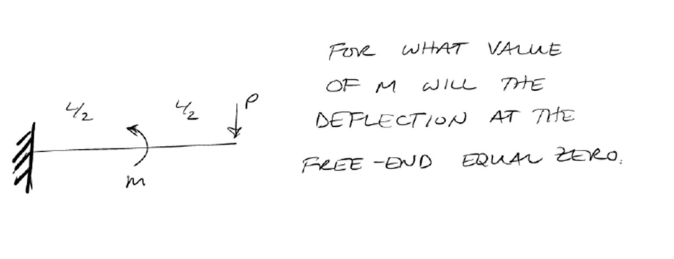 FOR WHAT VALUE
OF M WILL THE
DEFLECTION AT THE
FREE-END EQUAL ZERO.
L/2
L/2
P
M